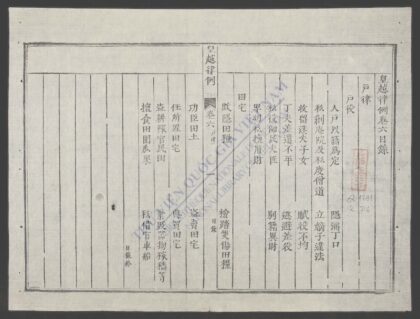 皇越律例卷六目錄
戶律
戶役
人戶以籍爲定 隱漏丁口
私創庵院及私度僧道 立嫡子違法
收留迷失子女 賦役不均
丁夫差遣不平 逃避差役
別籍異財
卑幼私擅用財
田宅
欺隱田糧 檢踏災傷田糧
功臣田土 盜賣田宅
任所置田宅 典買田宅
盜耕種官民田
擅食田園瓜果 私借官車船
皇越律例
卷六
目錄
THƯ VIỆN QUỐC GIA VIỆT NAM
NATIONAL LIBRARY OF VIETNAM